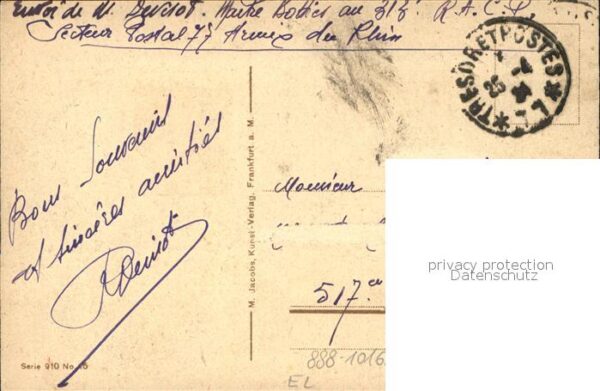 Envoi de M. Denisot, Maitre Bottier au 213e R.A.C.P.
Secteur Postal 77 Armée du Rhin
*TRESOR ET POSTES*
Bons Souvenirs
et sincères amitiés
Denisot
M. Jacobs, Kunst-Verlag, Frankfurt a. M.
Monsieur
517e
privacy protection
Datenschutz
Serie 910 No.
888-1016
EL